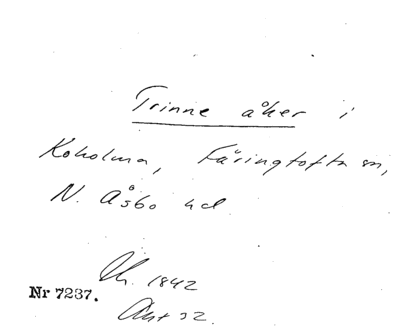 Trinne åker i
Koholma, Färingtofta sn,
N. Åsbo hd
Uh. 1842
Nr 7237.
Akt 32.